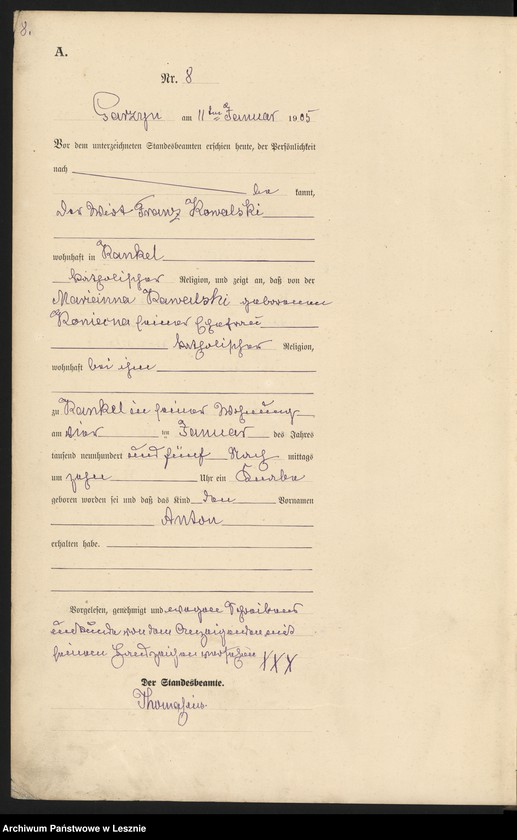 8.
A.
Nr. 8
Garzyn am 11ten Januar 1905
Vor dem unterzeichneten Standesbeamten erschien heute, der Persönlichkeit
nach
be kannt,
der Wirt Franz Kowalski
wohnhaft in Kankel
katholischer Religion, und zeigt an, daß von der
Marianna Kowalski geborenen
Konieczna seiner Ehefrau
katholischer Religion,
wohnhaft bei ihm
zu Kankel in seiner Wohnung
am vier ten Januar des Jahres
tausend neunhundert und fünf Nach mittags
um zehn Uhr ein Knabe
geboren worden sei und daß das Kind den Vornamen
Anton
erhalten habe.
Vorgelesen, genehmigt und wegen Schreibens
unkunde von dem Anzeigenden mit
seinem Handzeichen versehen XXX
Der Standesbeamte.
Archiwum Państwowe w Lesznie